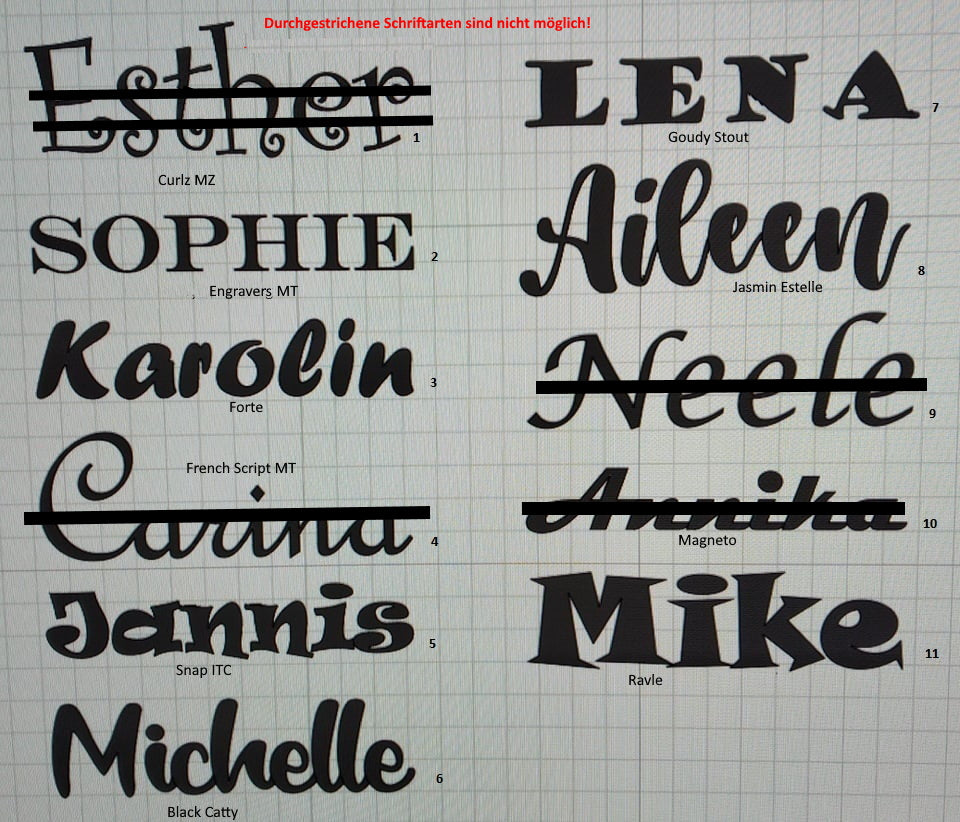 Durchgestrichene Schriftarten sind nicht möglich!
Esther
1
Curlz MZ
SOPHIE
2
Engravers MT
Karolin
3
Forte
French Script MT
Carina
4
Jannis
5
Snap ITC
Michelle
6
Black Catty
LENA
7
Goudy Stout
Aileen
8
Jasmin Estelle
Neele
9
Annika
10
Magneto
Mike
11
Ravle